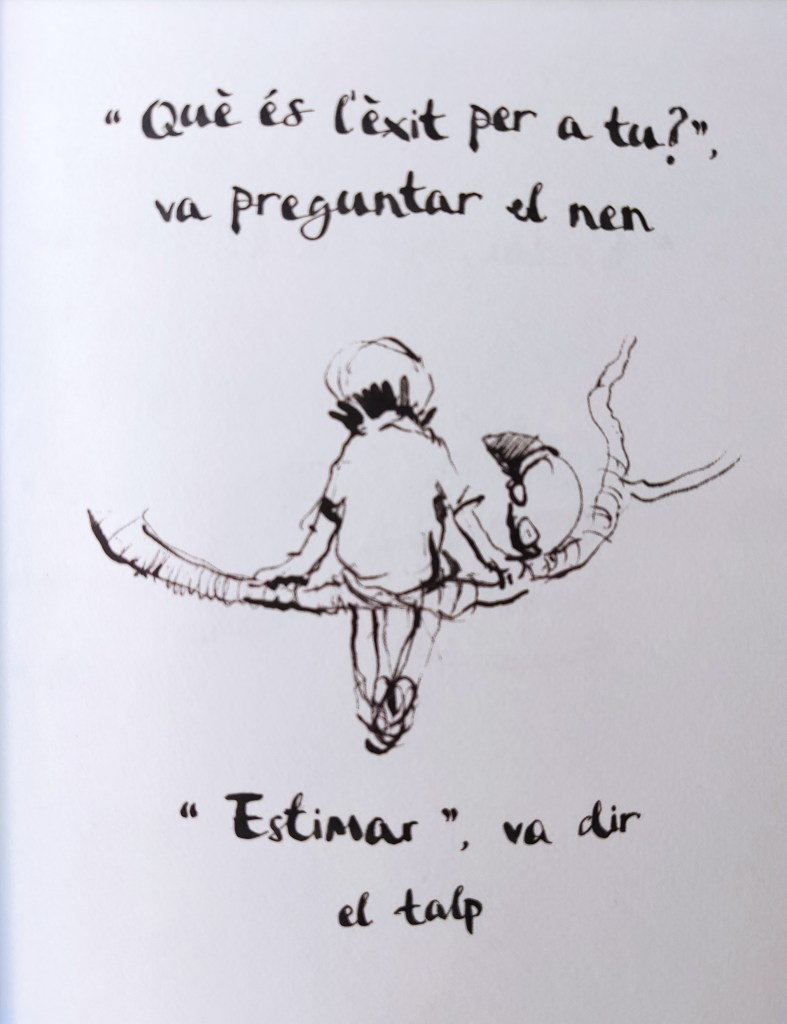 “ Què és l'èxit per a tu?”,
va preguntar el nen
“ Estimar ”, va dir
el talp